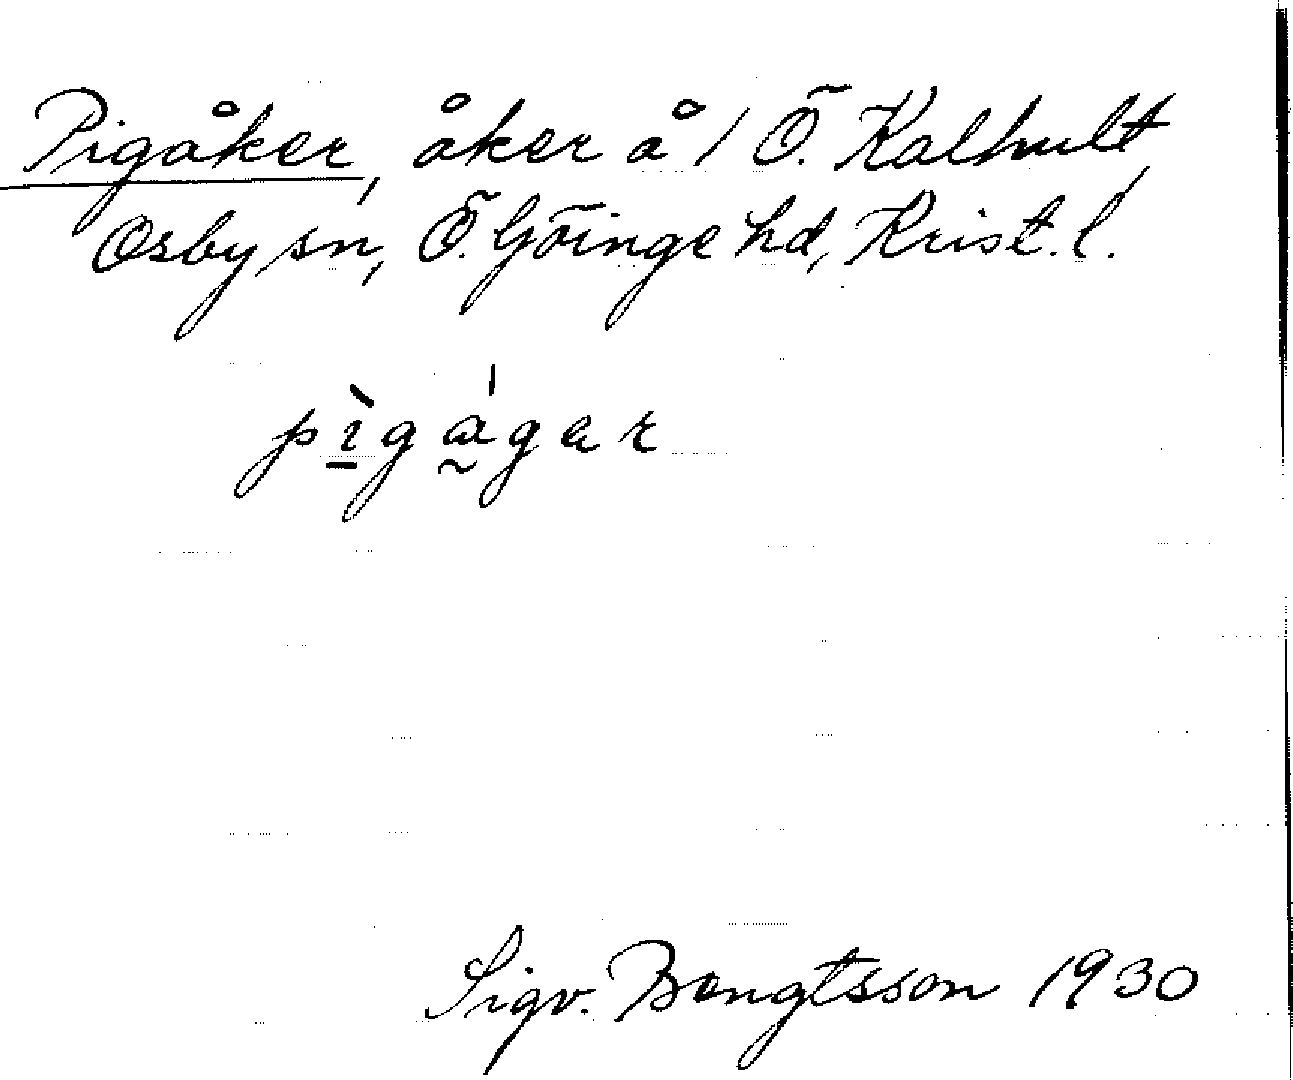 Pigåker, åker å 1 Ö. Kalhult,
Osby sn, Ö. Göinge hd, Krist. l.
Sigv. Bengtsson 1930